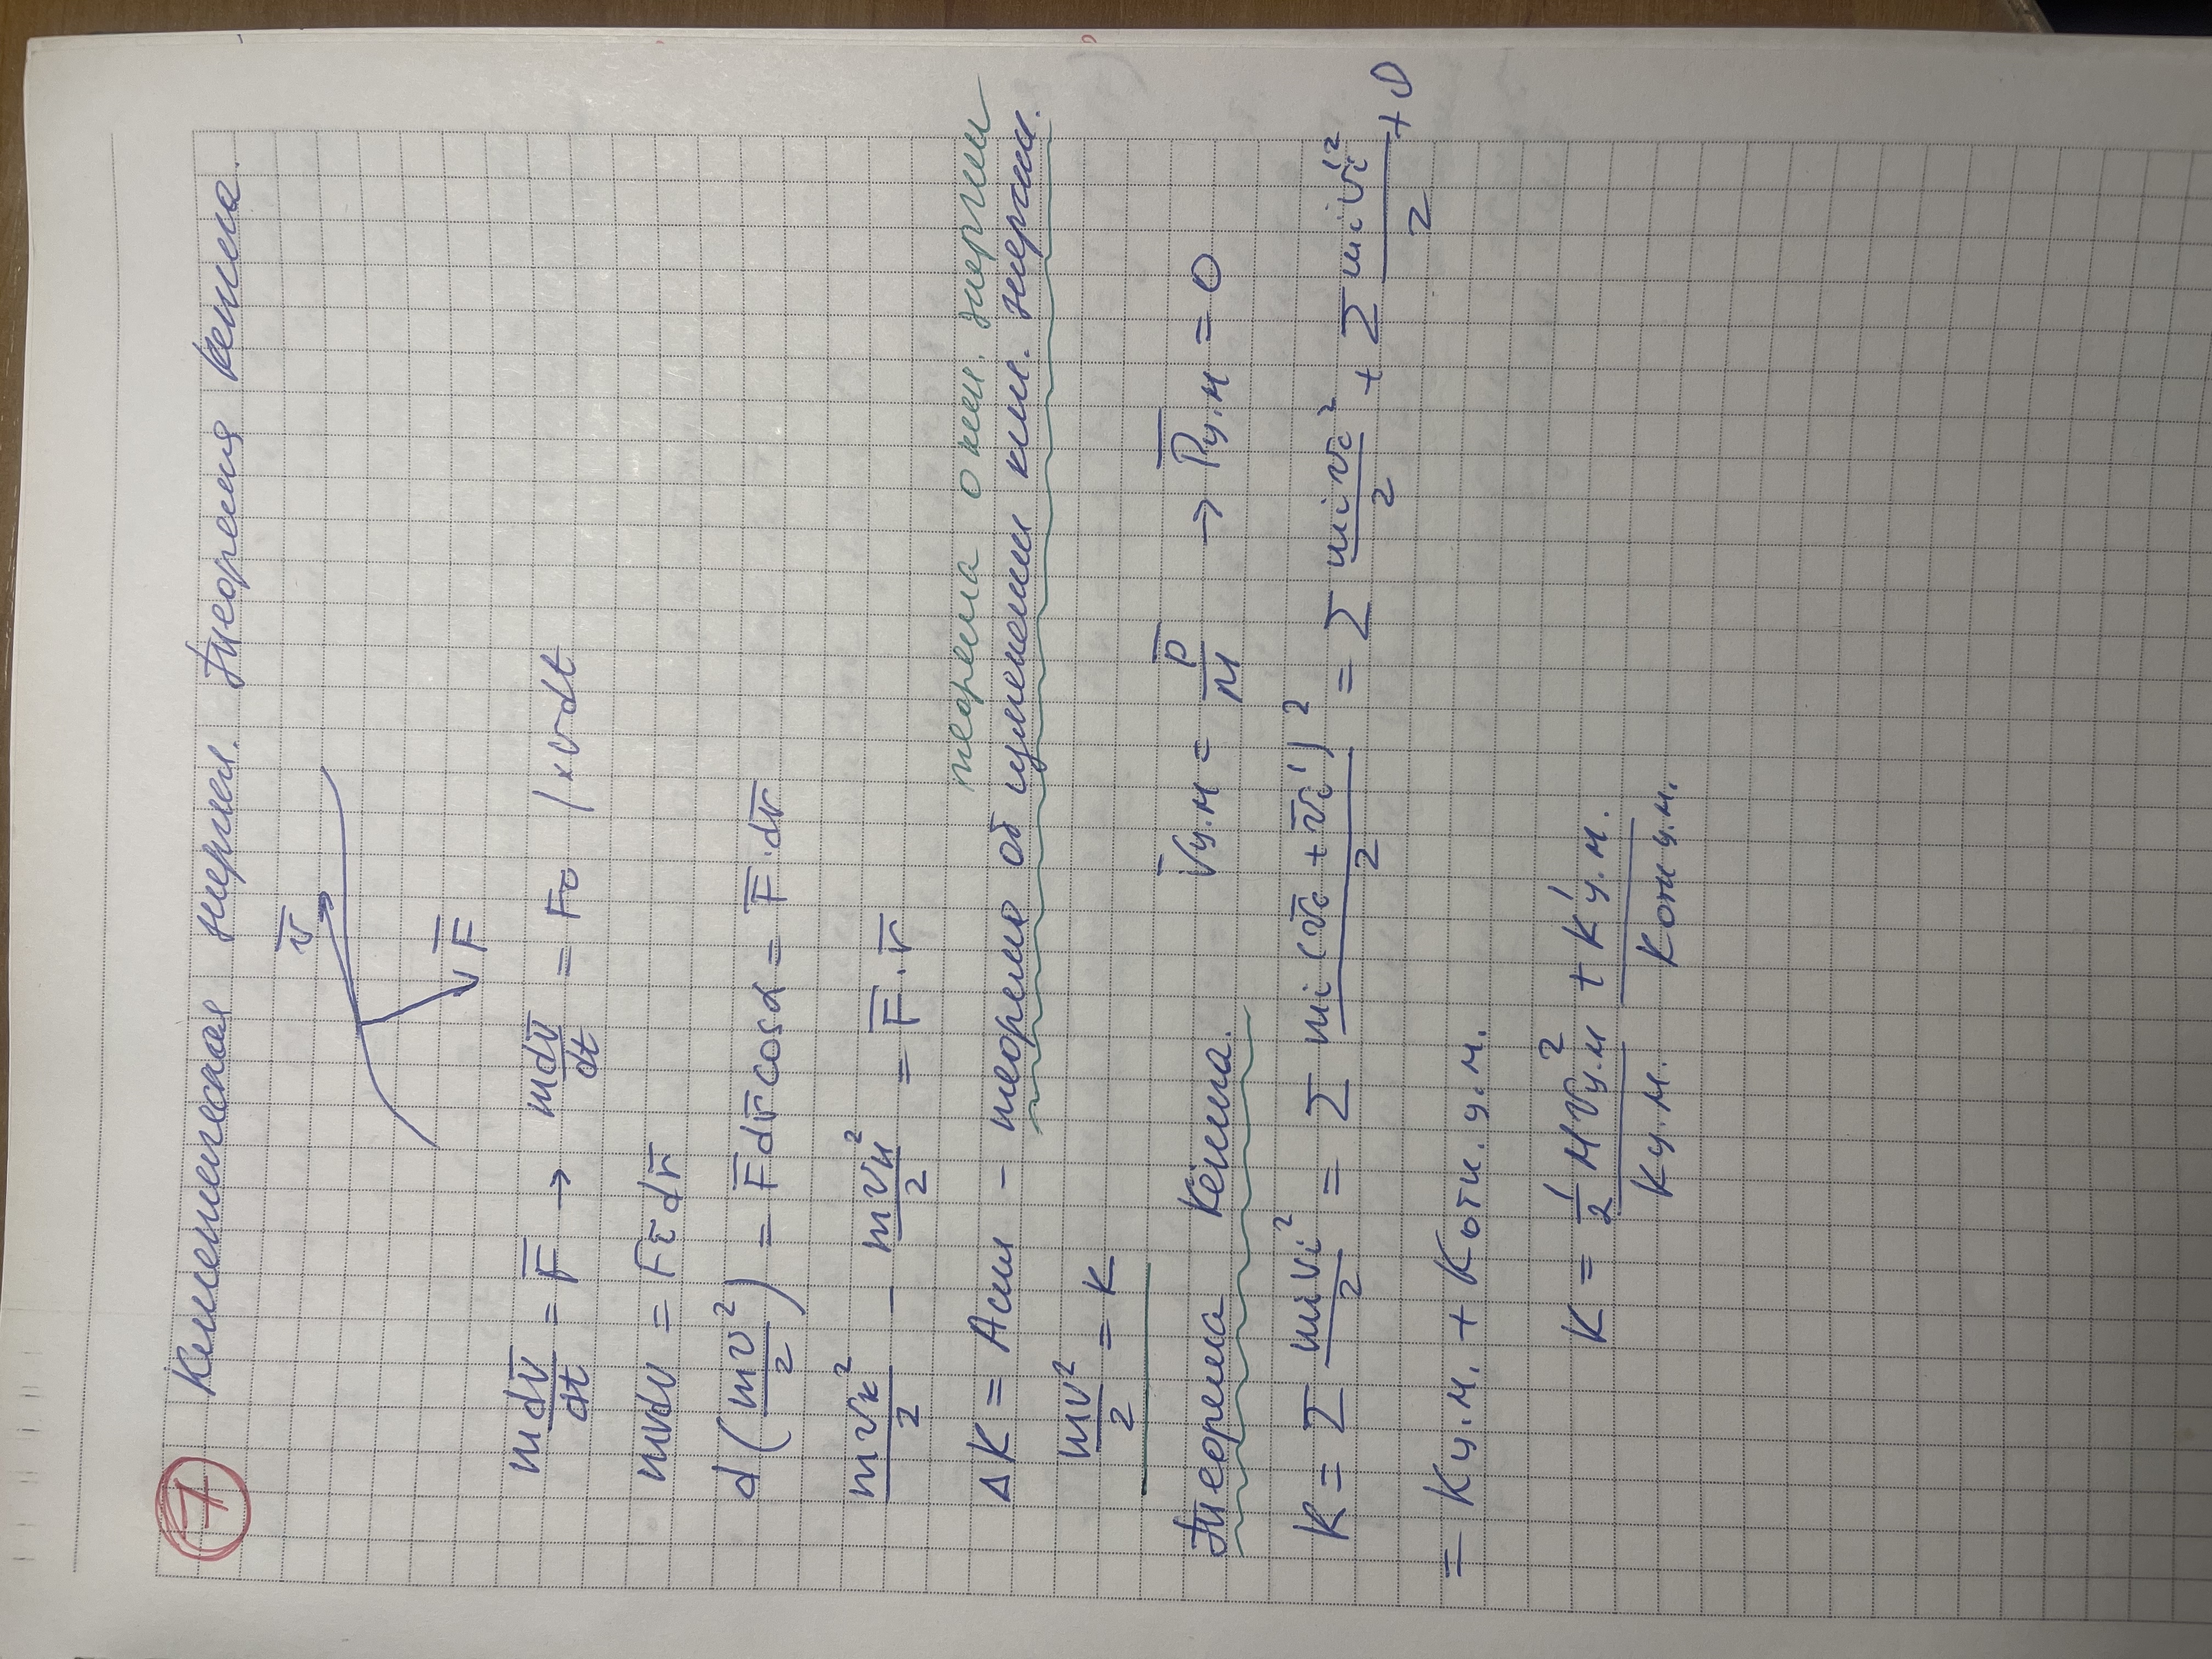 7 Кинетическая энергия. Теорема Кёнига.
v̅
F̅
mdv̅/dt = F̅ → mdv̅/dt = Fτ | × v dt
mvdv = Fτ dr̅
d(mv²/2) = F̅dr̅cosα = F̅·dr̅
mvк²/2 − mvн²/2 = F̅·r̅
теорема о кин. энергии
ΔK = Aсил – теорема об изменении кин. энергии.
mv²/2 = K
Теорема Кёнига. V̅ц.м = P̅/M → P̅ц.м = 0
K = Σ mivi²/2 = Σ mi(v̅c + v̅i')²/2 = Σ mivc²/2 + Σ mivi'²/2 + 0
= Kц.м. + Kотн.ц.м.
K = 1/2 MVц.м² + K'ц.м.
Kц.м. Kотн ц.м.